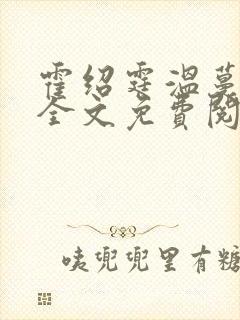 霍绍霆温蔓
全文免费阅
咦兜兜里有糖